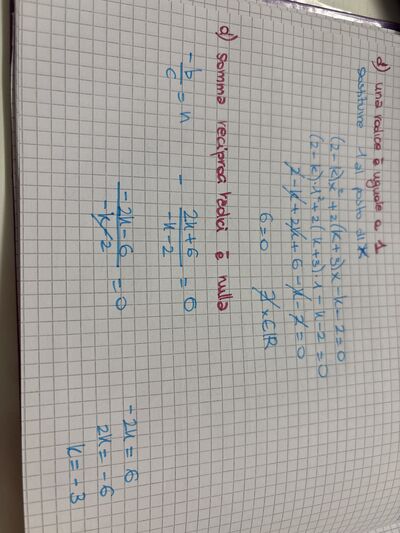 d) una radice è uguale a 1
sostituire 1 al posto di x
(2-k)x²+2(k+3)x-k-2=0
(2-k)·1²+2(k+3)·1-k-2=0
2-k+2k+6-k-2=0
6=0 ∄ x∈ℝ
d) somma reciproci radici è nulla
-b/c = n - 2k+6/-k-2 = 0
-2k-6/-k-2 = 0 -2k=6
2k=-6
k=-3